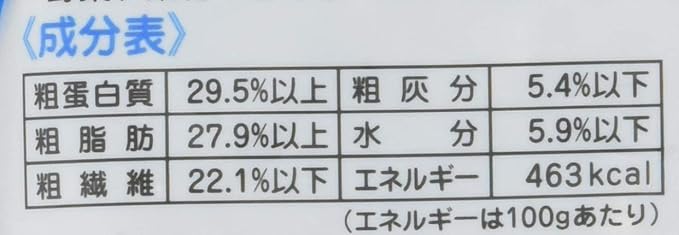 《成分表》
粗蛋白質 29.5%以上 粗灰分 5.4%以下
粗脂肪 27.9%以上 水分 5.9%以下
粗繊維 22.1%以下 エネルギー 463kcal
(エネルギーは100gあたり)